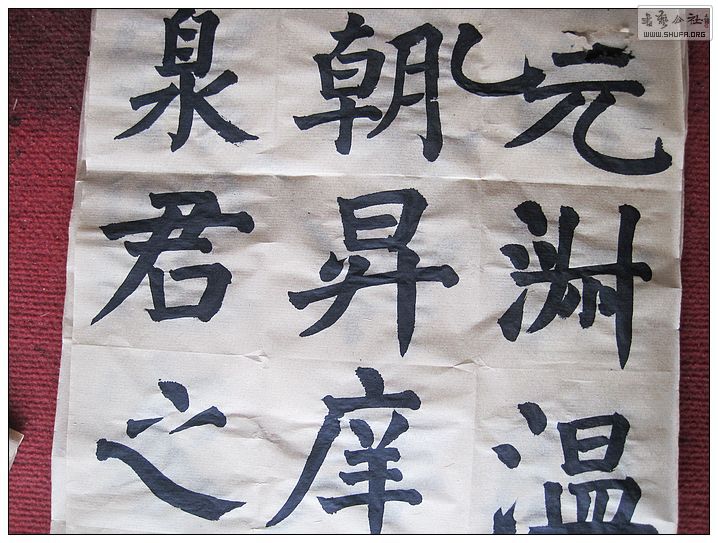 元淵温
朝昇庠
泉君之
公社
WWW.SHUFA.ORG